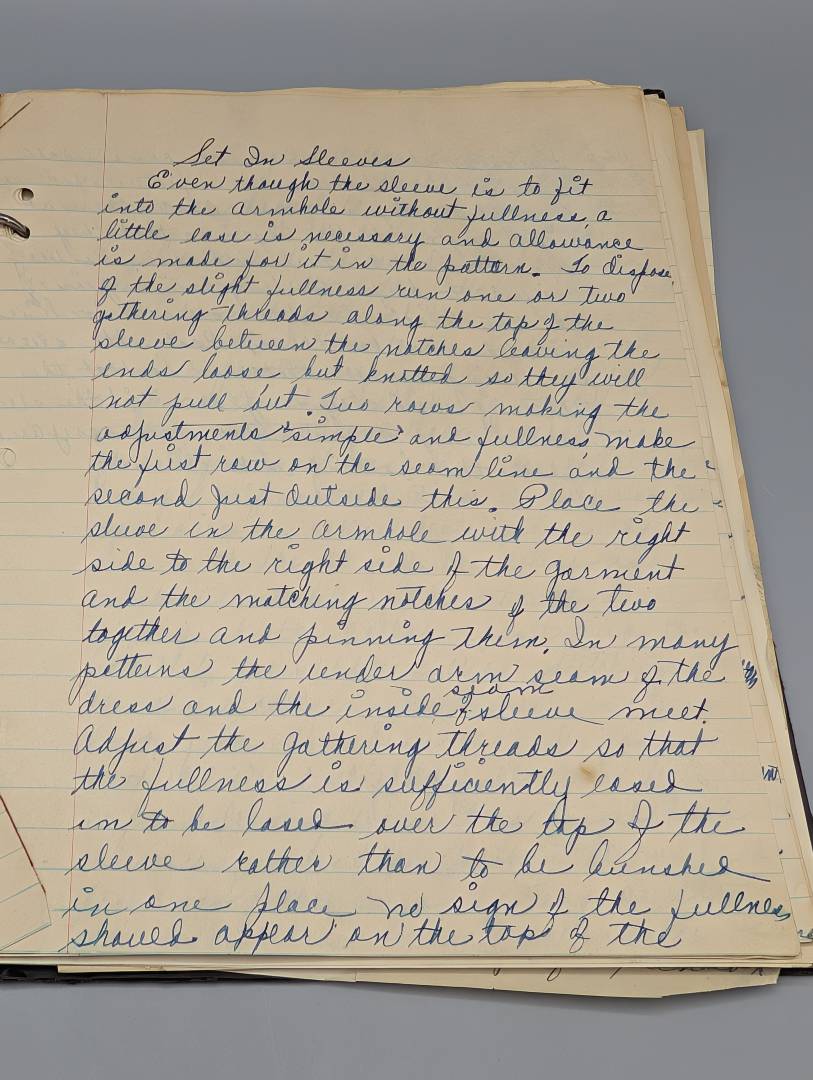 Set In Sleeves
Even though the sleeve is to fit
into the armhole without fullness, a
little ease is necessary and allowance
is made for it in the pattern. To dispose
of the slight fullness run one or two
gathering threads along the top of the
sleeve between the notches leaving the
ends loose but knotted so they will
not pull out. Two rows making the
adjustments "simple" and fullness, make
the first row on the seam line and the
second just outside this. Place the
sleeve in the armhole with the right
side to the right side of the garment
and the matching notches of the two
together and pinning them. In many
patterns the under arm seam of the
dress and the inside seam of sleeve meet.
Adjust the gathering threads so that
the fullness is sufficiently eased
in to be eased over the top of the
sleeve rather than to be bunshed
in one place no sign of the fullness
should appear on the top of the